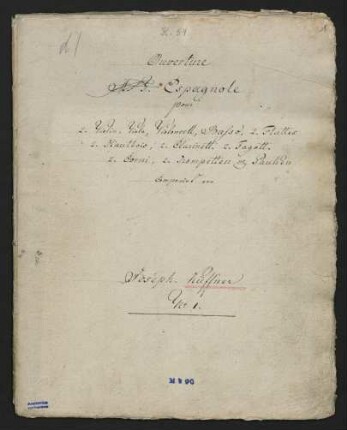 d1
Ouverture
Espagnole
pour
2. Violin, Viola, Violoncell, Basso, 2. Flauti
2. Hautbois, 2. Clarinett, 2. Fagott.
2. Corni, 2. Trompetten et Paucken
Joseph. Küffner
No. 1.
M 990